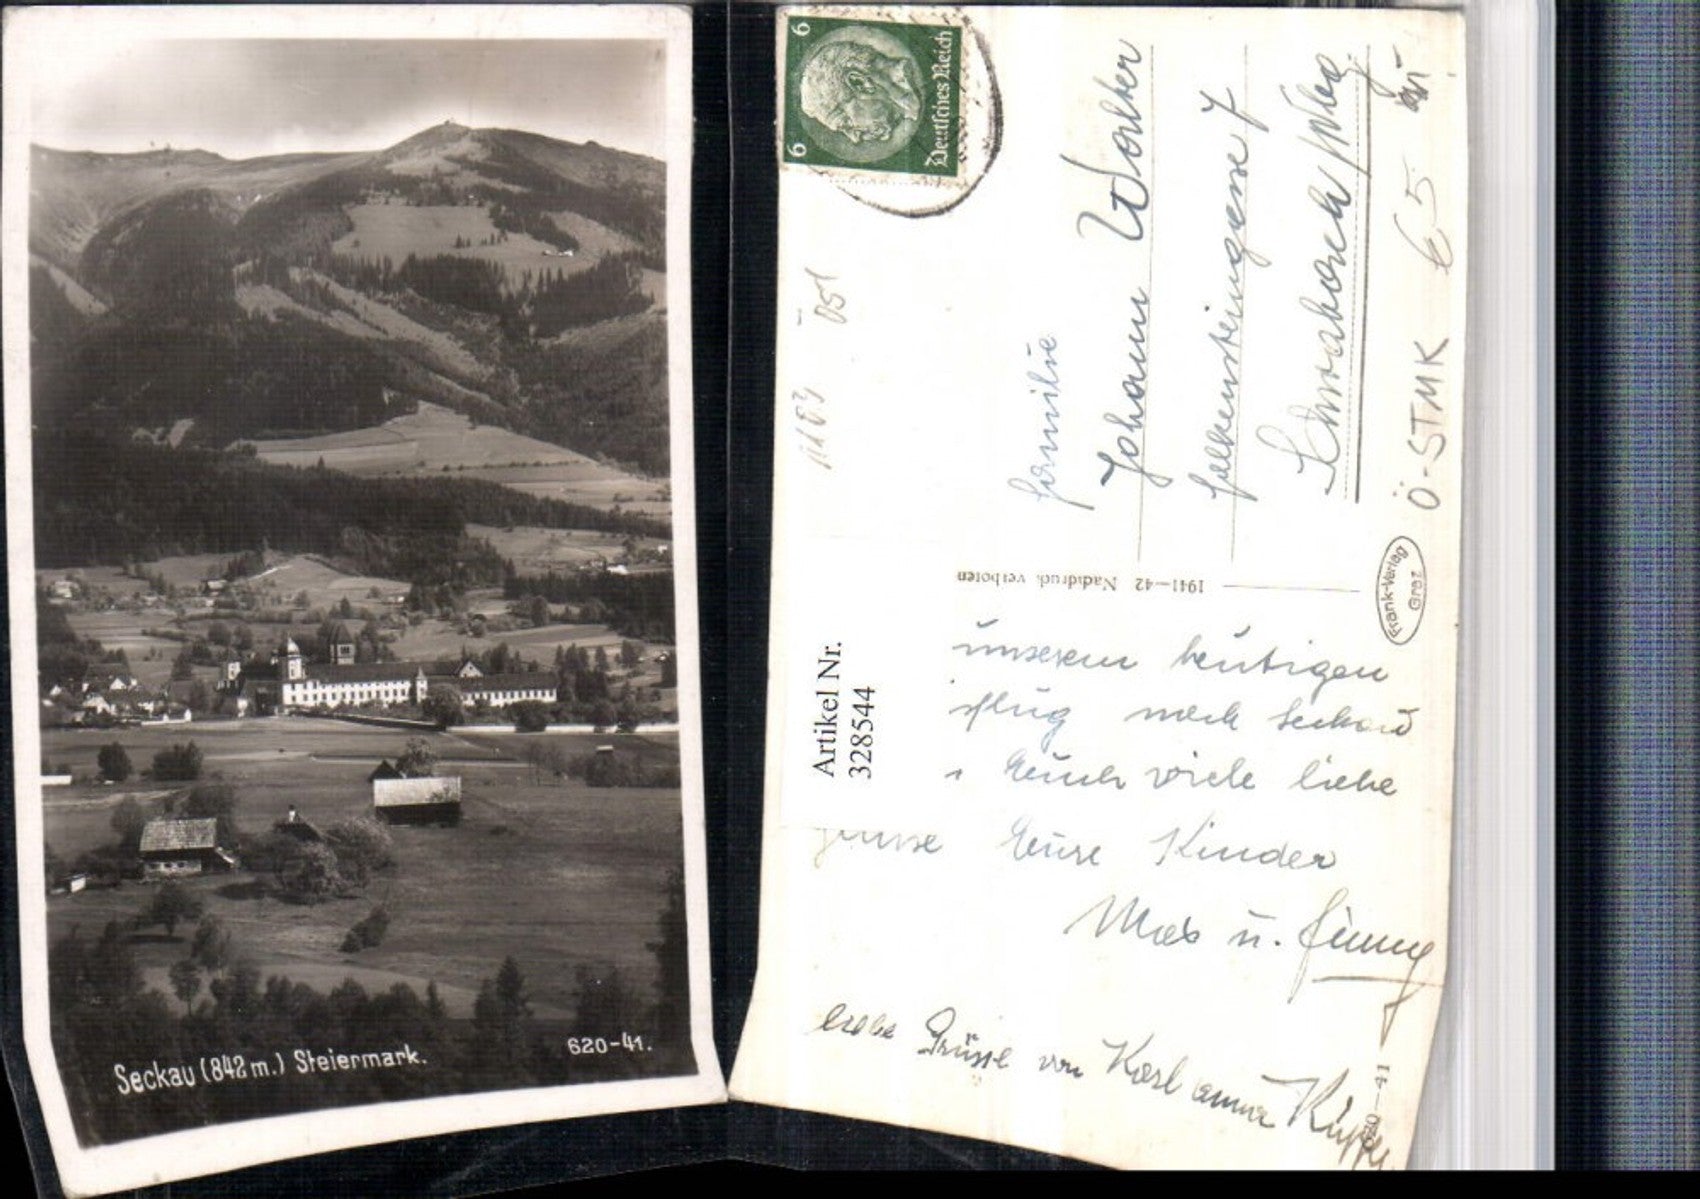 Seckau (842 m.) Steiermark.
620-41.
6
6
Deutsches Reich
Familie
Johann Walter
7
Ö-STMK
65
1183
Öst
1941—42 Nachdruck verboten
Frank-Verlag
Graz
Artikel Nr.
328544
unserem heutigen
sflug nach Seckau
Euch viele liebe
Eure Kinder
u.
Liebe Grüsse von Karl
620—41